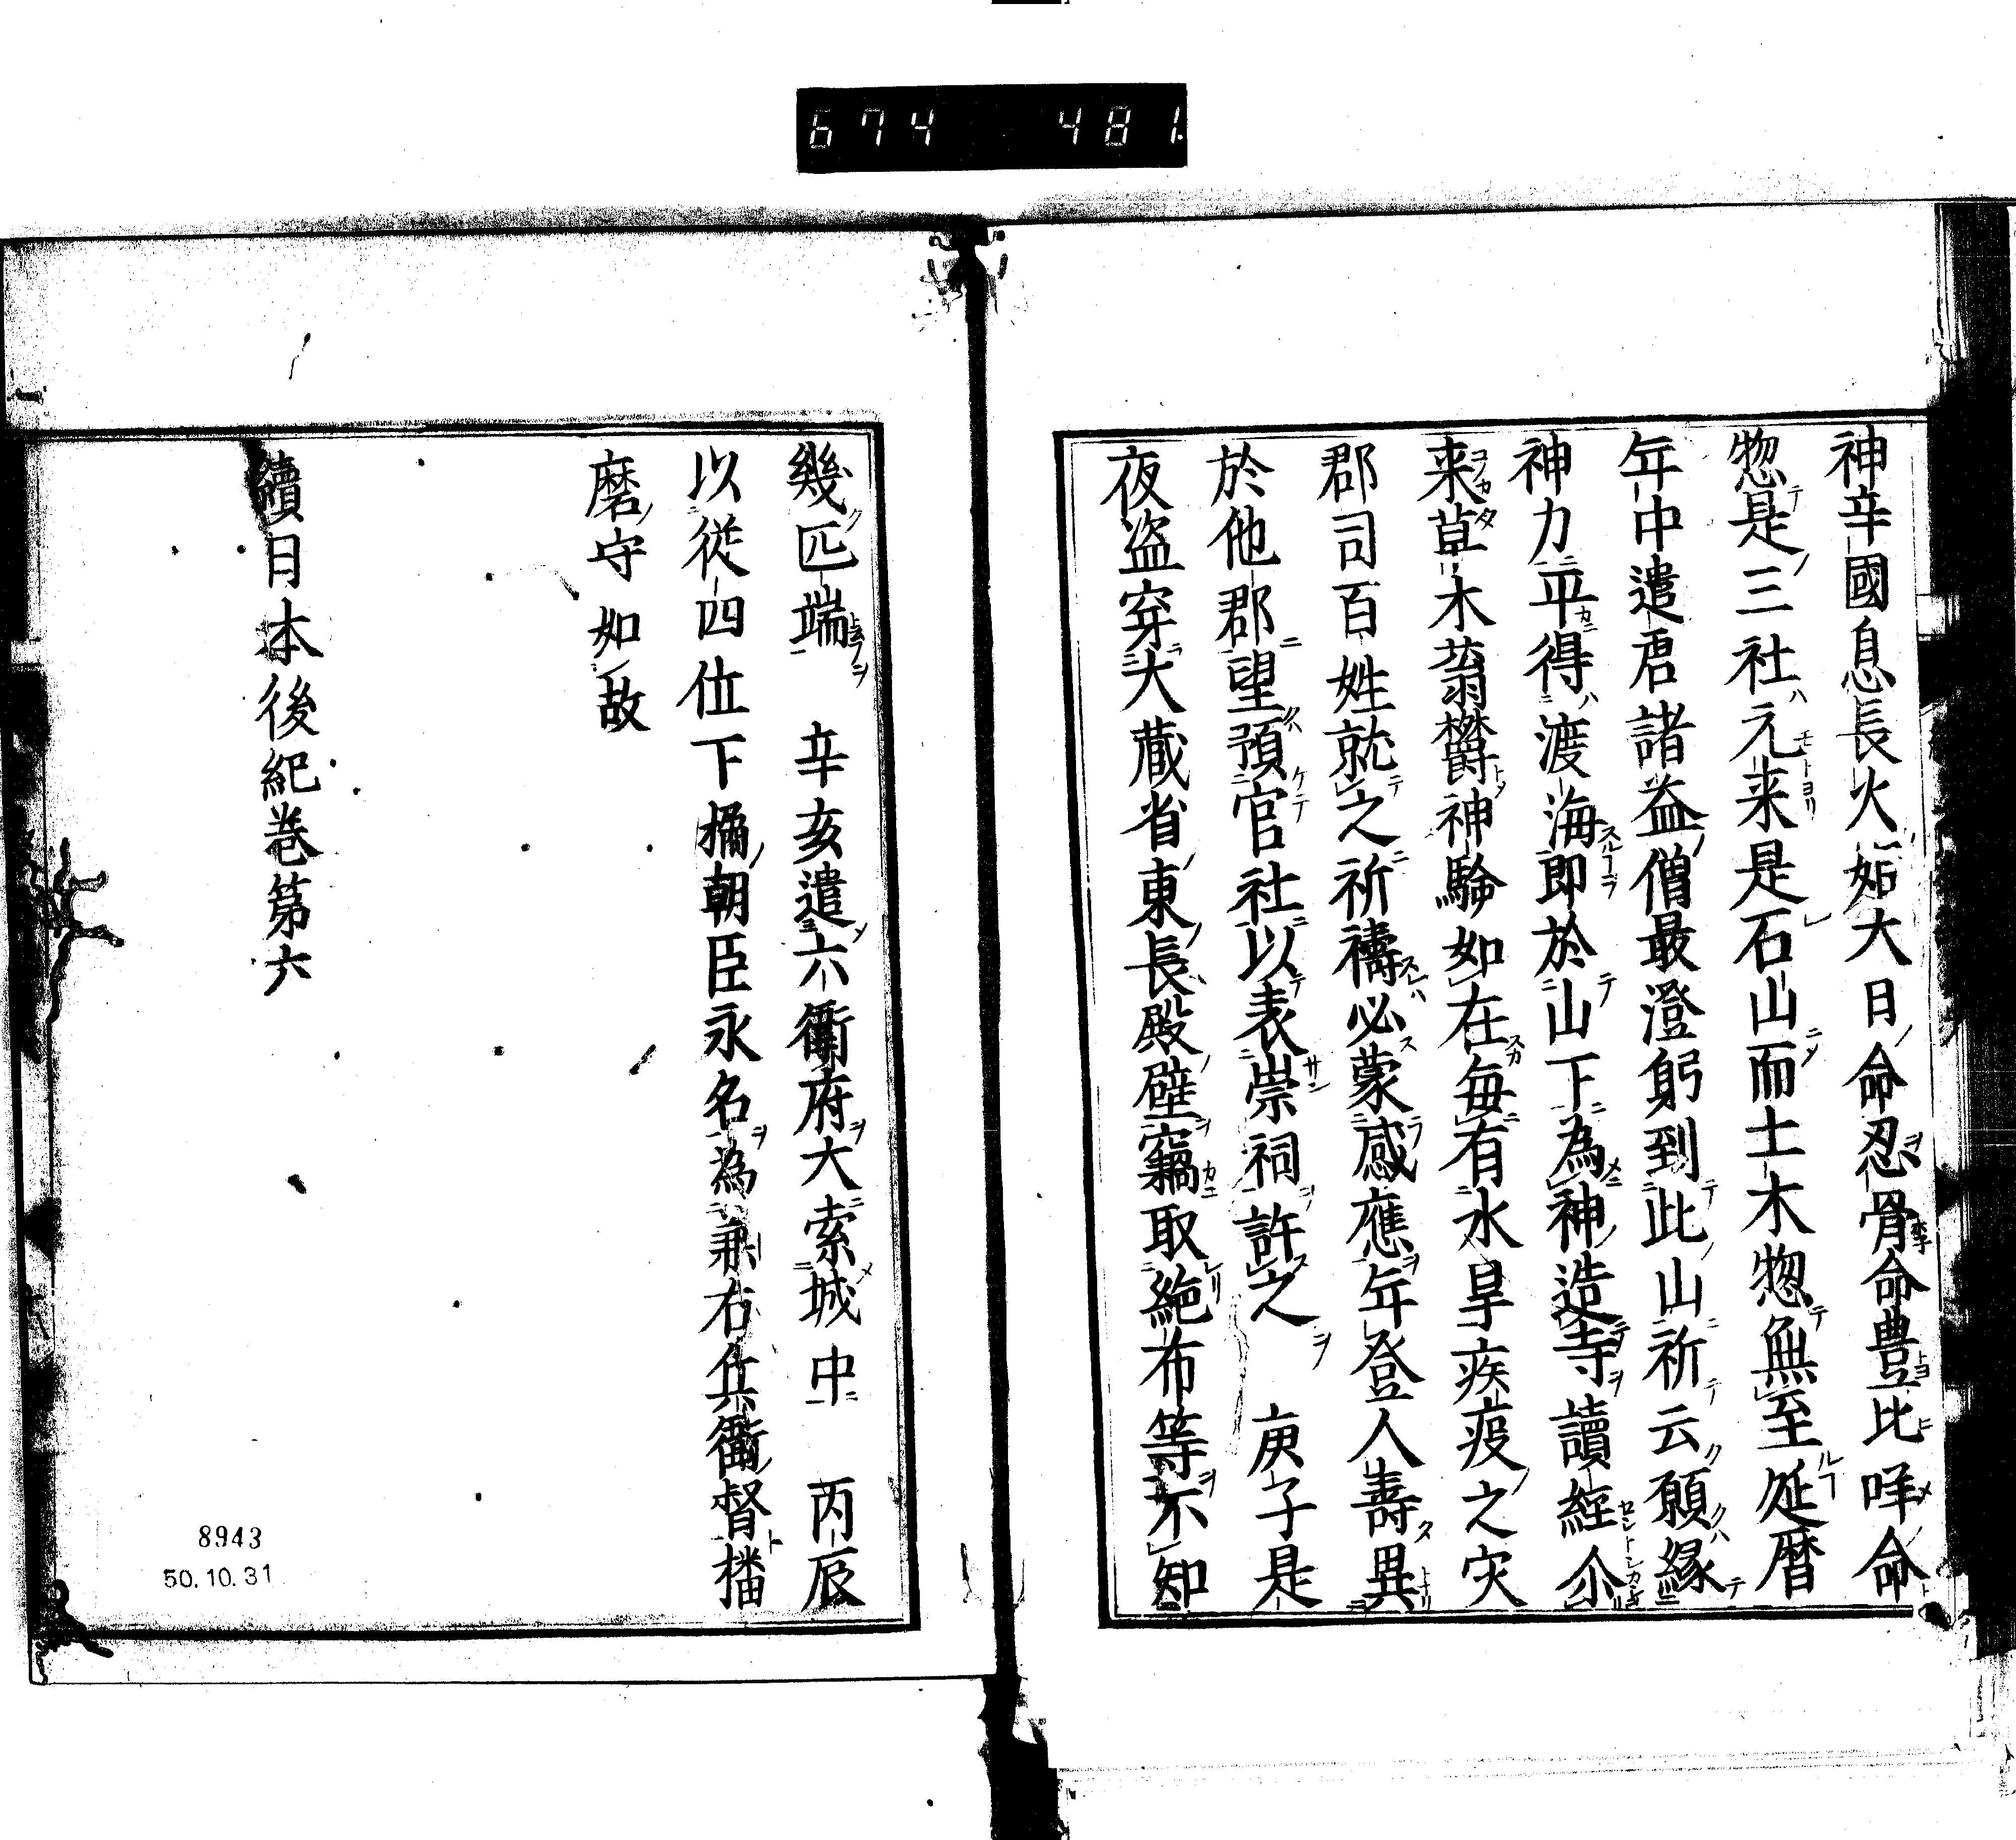 674 481
神辛國息長火姤大目命忍骨命豊比咩命
惣是三社元来是石山而土木惣無至延暦
年中遣唐請益僧最澄躬到此山祈云願縁
神力平得渡海即於山下為神造寺讀經尒
来草木蓊欝神驗如在毎有水旱疾疫之灾
郡司百姓就之祈禱必蒙感應年登人壽異
於他郡望預官社以表崇祠許之 庚子是
夜盗穿大蔵省東長殿壁竊取絁布等不知
幾匹端 辛亥遣六衛府大索城中 丙辰
以從四位下橘朝臣永名為兼右兵衛督播
磨守如故
續日本後紀巻第六
8943
50.10.31